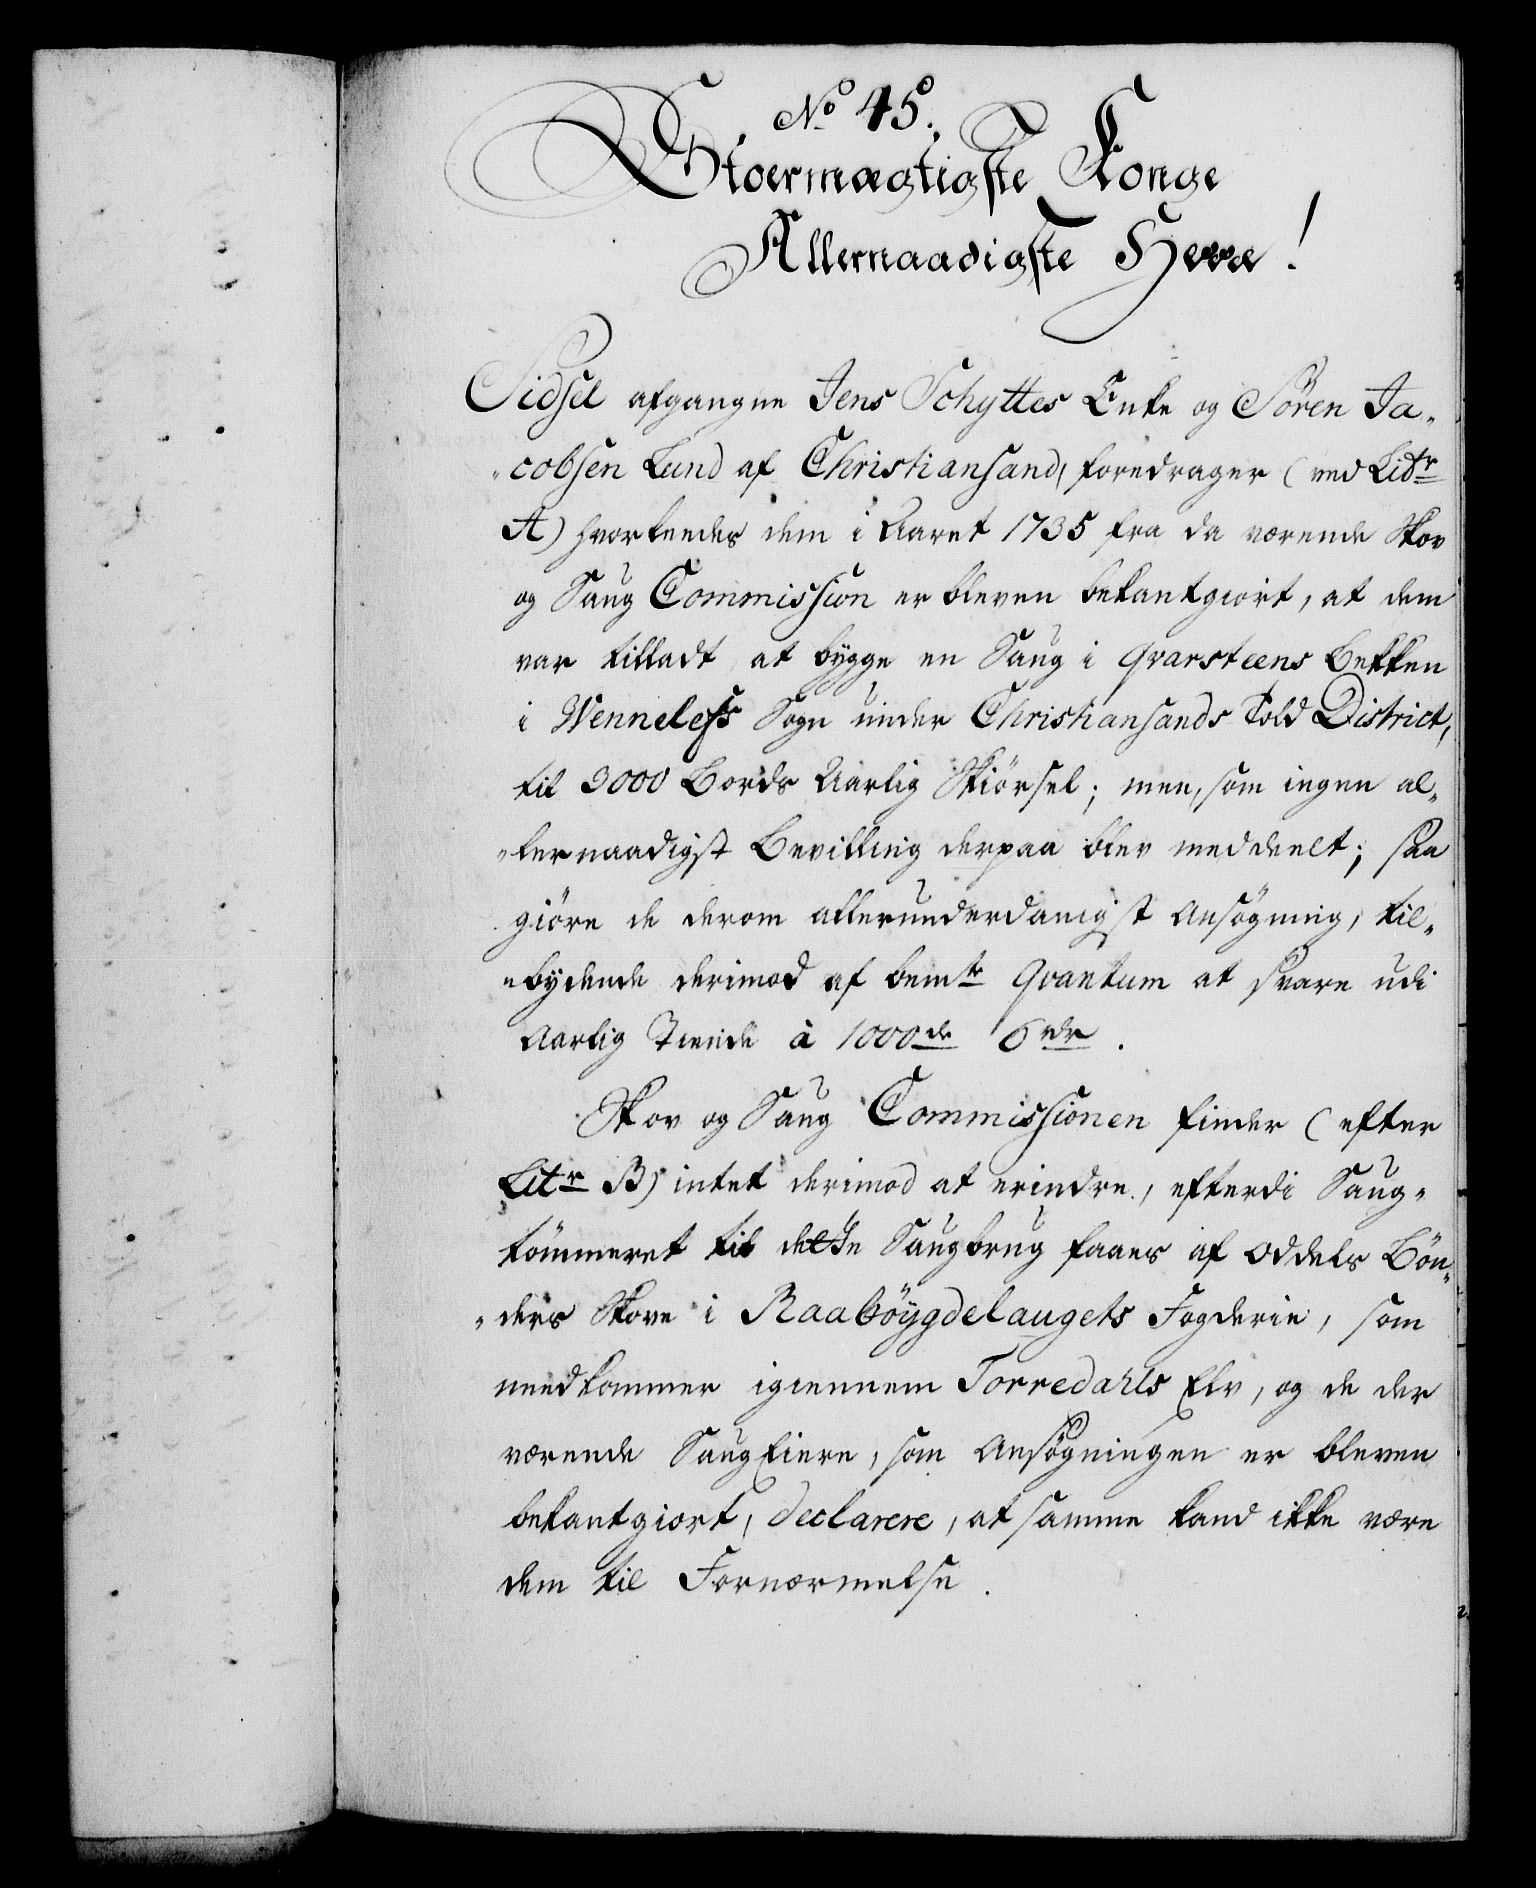 No 45.
Stoermægtigste Konge
Allernaadigste Herre!
Sidsel afgangne Jens Schyttes Enke og Sören Ja„
„cobsen Lund af Christiansand, foredrager (ved Litr
A) hvorledes dem i Aaret 1735 fra da værende Skov
og Saug Commission er bleven bekantgiort, at dem
var tilladt at bygge en Saug i Qvarsteens Bekken
i Wenneless Sogn under Christiansands Told District,
til 3000 Bords Aarlig Skiörsel; men, som ingen al„
„lernaadigst Bevilling derpaa blev meddeelt; saa
giöre de derom allerunderdanigst Ansögning, til„
„bydende derimod af bemte Qvantum at svare udi
Aarlig Tiende à 1000de 6 rdr.
Skov og Saug Commissionen finder (efter
Litr B) intet derimod at erindre, efterdi Saug„
tömmeret til dette Saugbrug faaes af Oddels Bön„
„ders Skove i Raaböygdelaugets Fogderie, som
nedkommer igiennem Torredahls Elv, og de der
værende Saug Eiere, som Ansögningen er bleven
bekantgiort, declarere, at samme kand ikke være
dem til Fornærmelse.